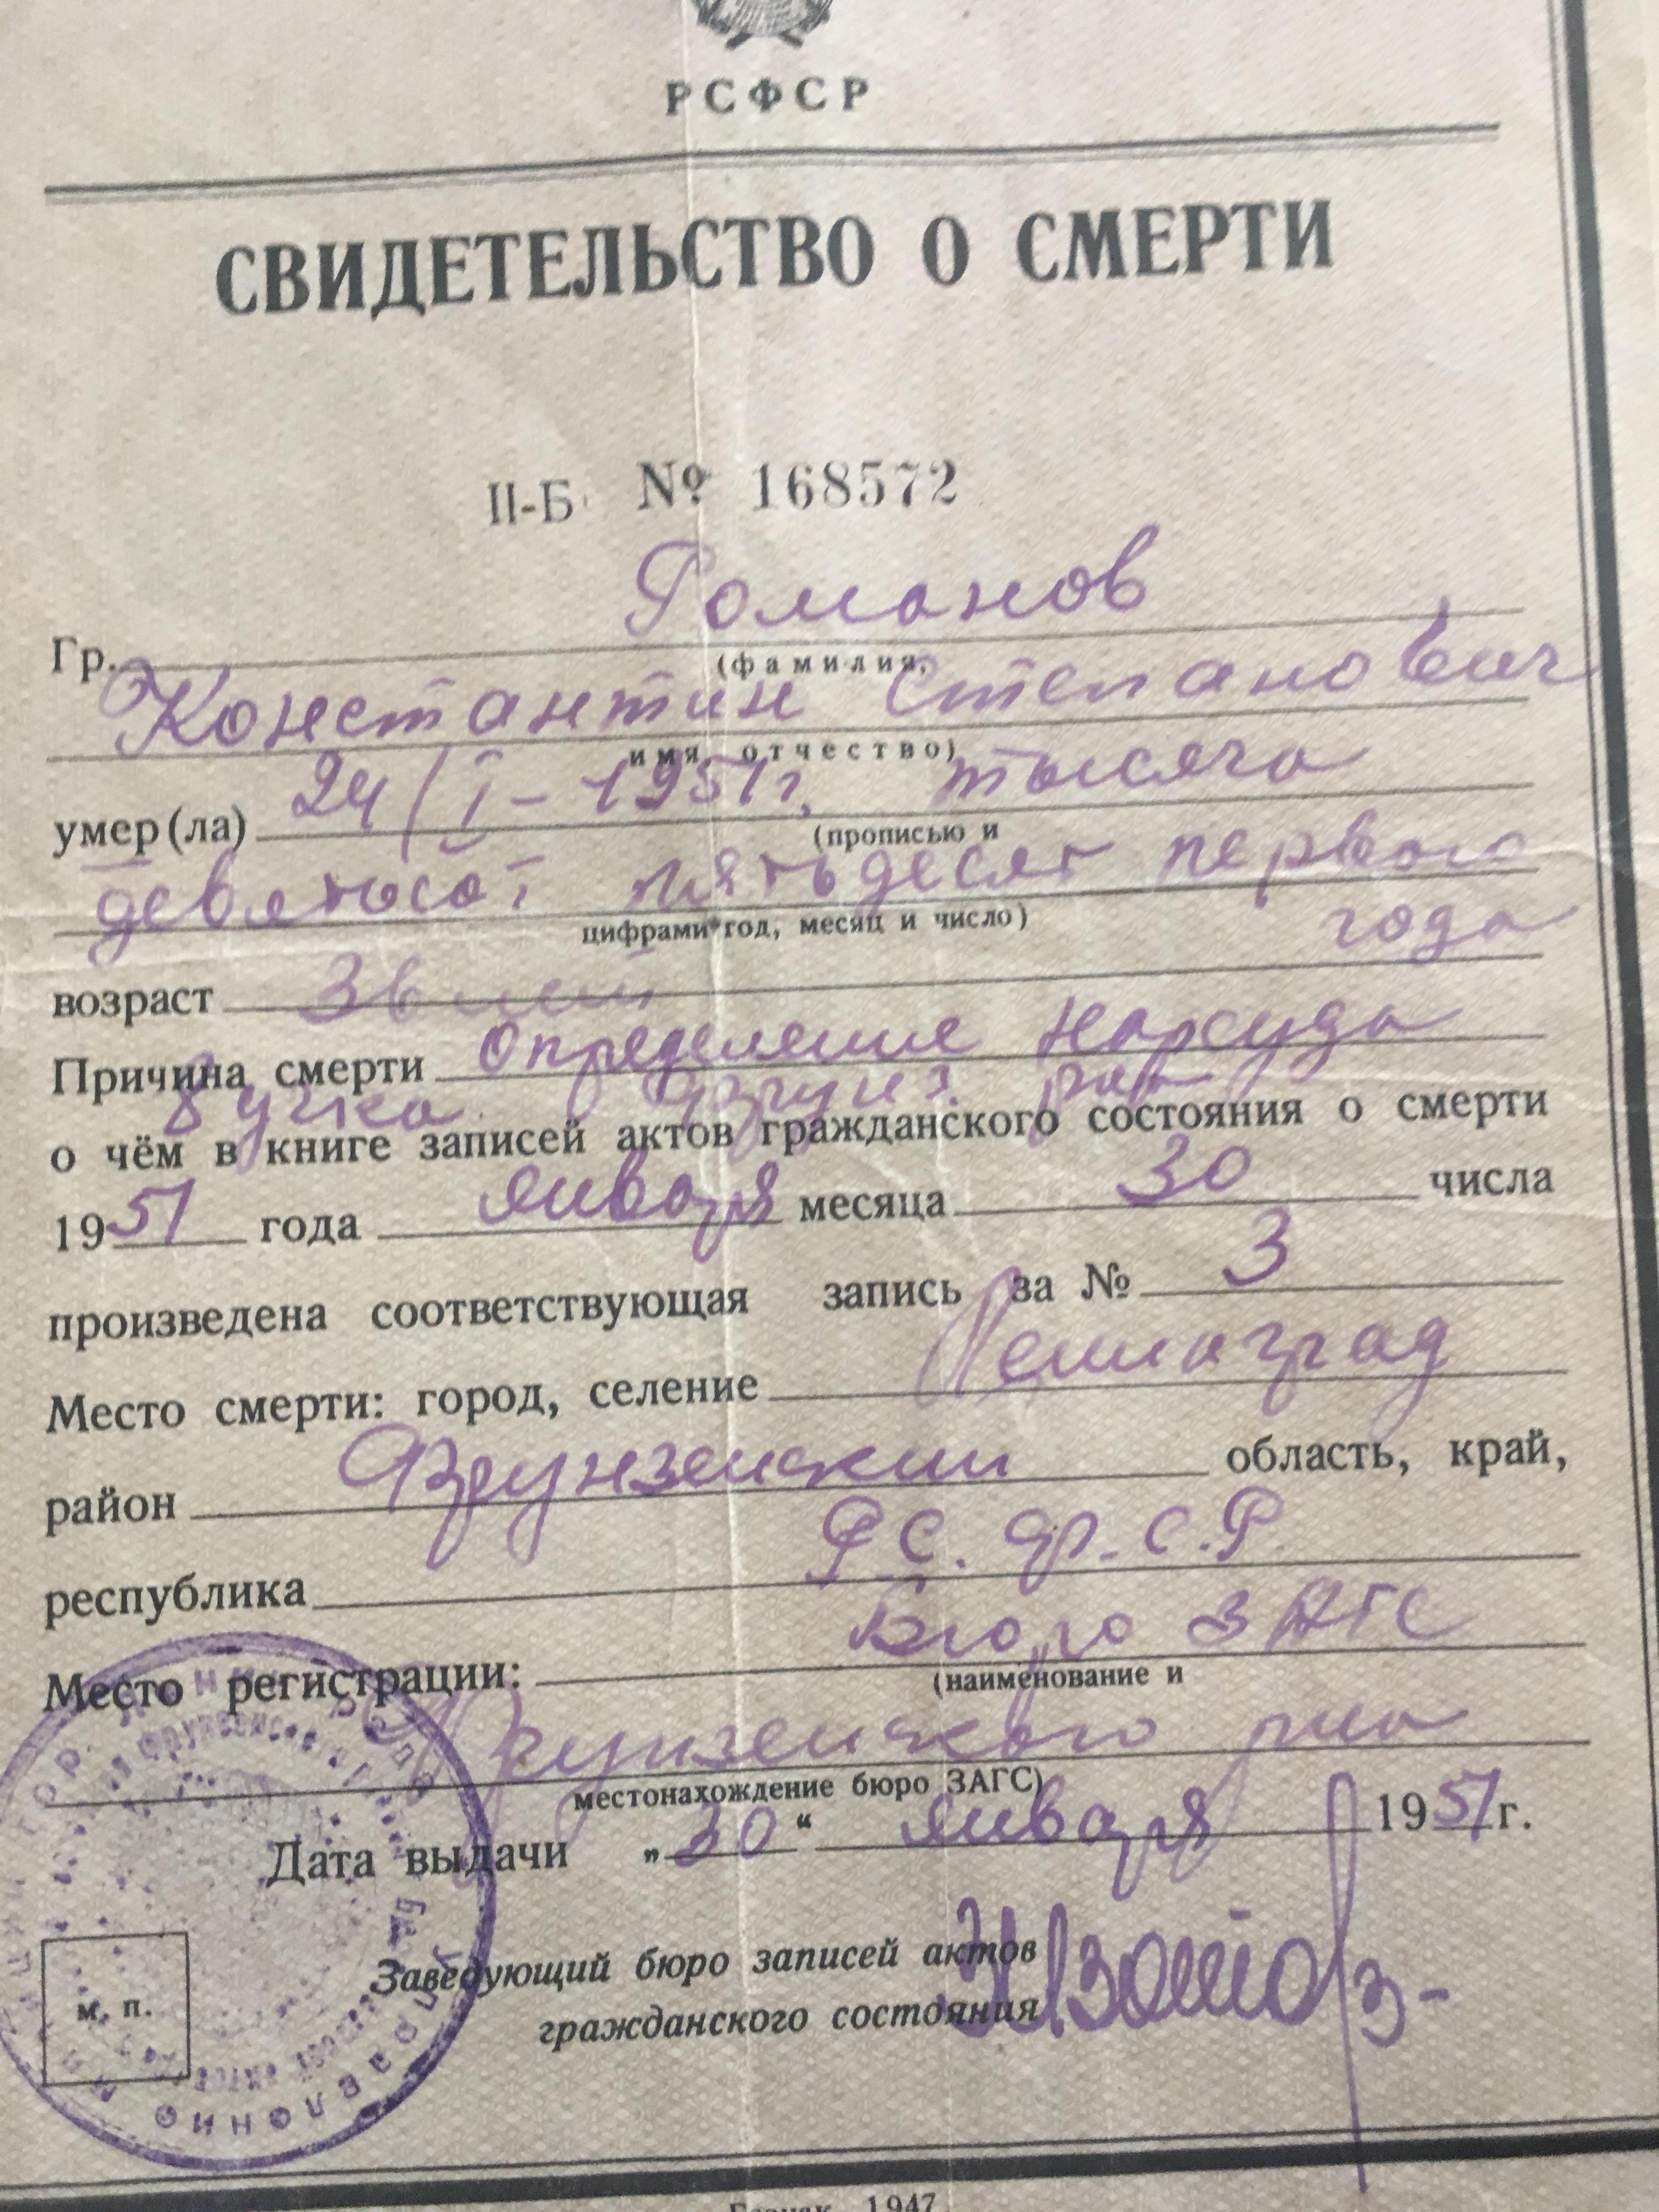 РСФСР
СВИДЕТЕЛЬСТВО О СМЕРТИ
II-Б № 168572
Гр. Романов
(фамилия,
Константин Степанович
имя, отчество)
умер(ла) 24/I-1951г. тысяча
(прописью и
девятьсот пятьдесят первого
цифрами год, месяц и число)
года
возраст 36 лет
Причина смерти Определение Нарсуда
8 уч-ка Фрунз. р-на
о чём в книге записей актов гражданского состояния о смерти
1951 года января месяца 30 числа
произведена соответствующая запись за № 3
Место смерти: город, селение Ленинград
район Фрунзенский область, край,
республика Р.С.Ф.С.Р.
Место регистрации: Бюро ЗАГС
(наименование и
Фрунзенского р-на
местонахождение бюро ЗАГС)
Дата выдачи „30“ января 1951г.
Заведующий бюро записей актов
гражданского состояния
м. п.
Гознак. 1947.